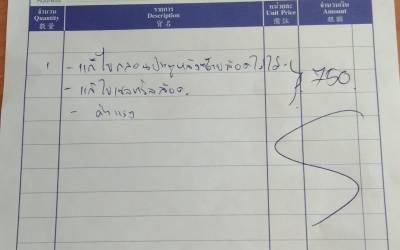 จำนวน รายการ หน่วยละ จำนวนเงิน
Quantity Description Unit Price Amount
數量 貨名 備註 銀額
1 - แก้ไขกลอนประตูหลังซ้ายล็อคไม่ได้ 750.
- แก้ไขเซลทรัลล็อค
- ค่าแรง